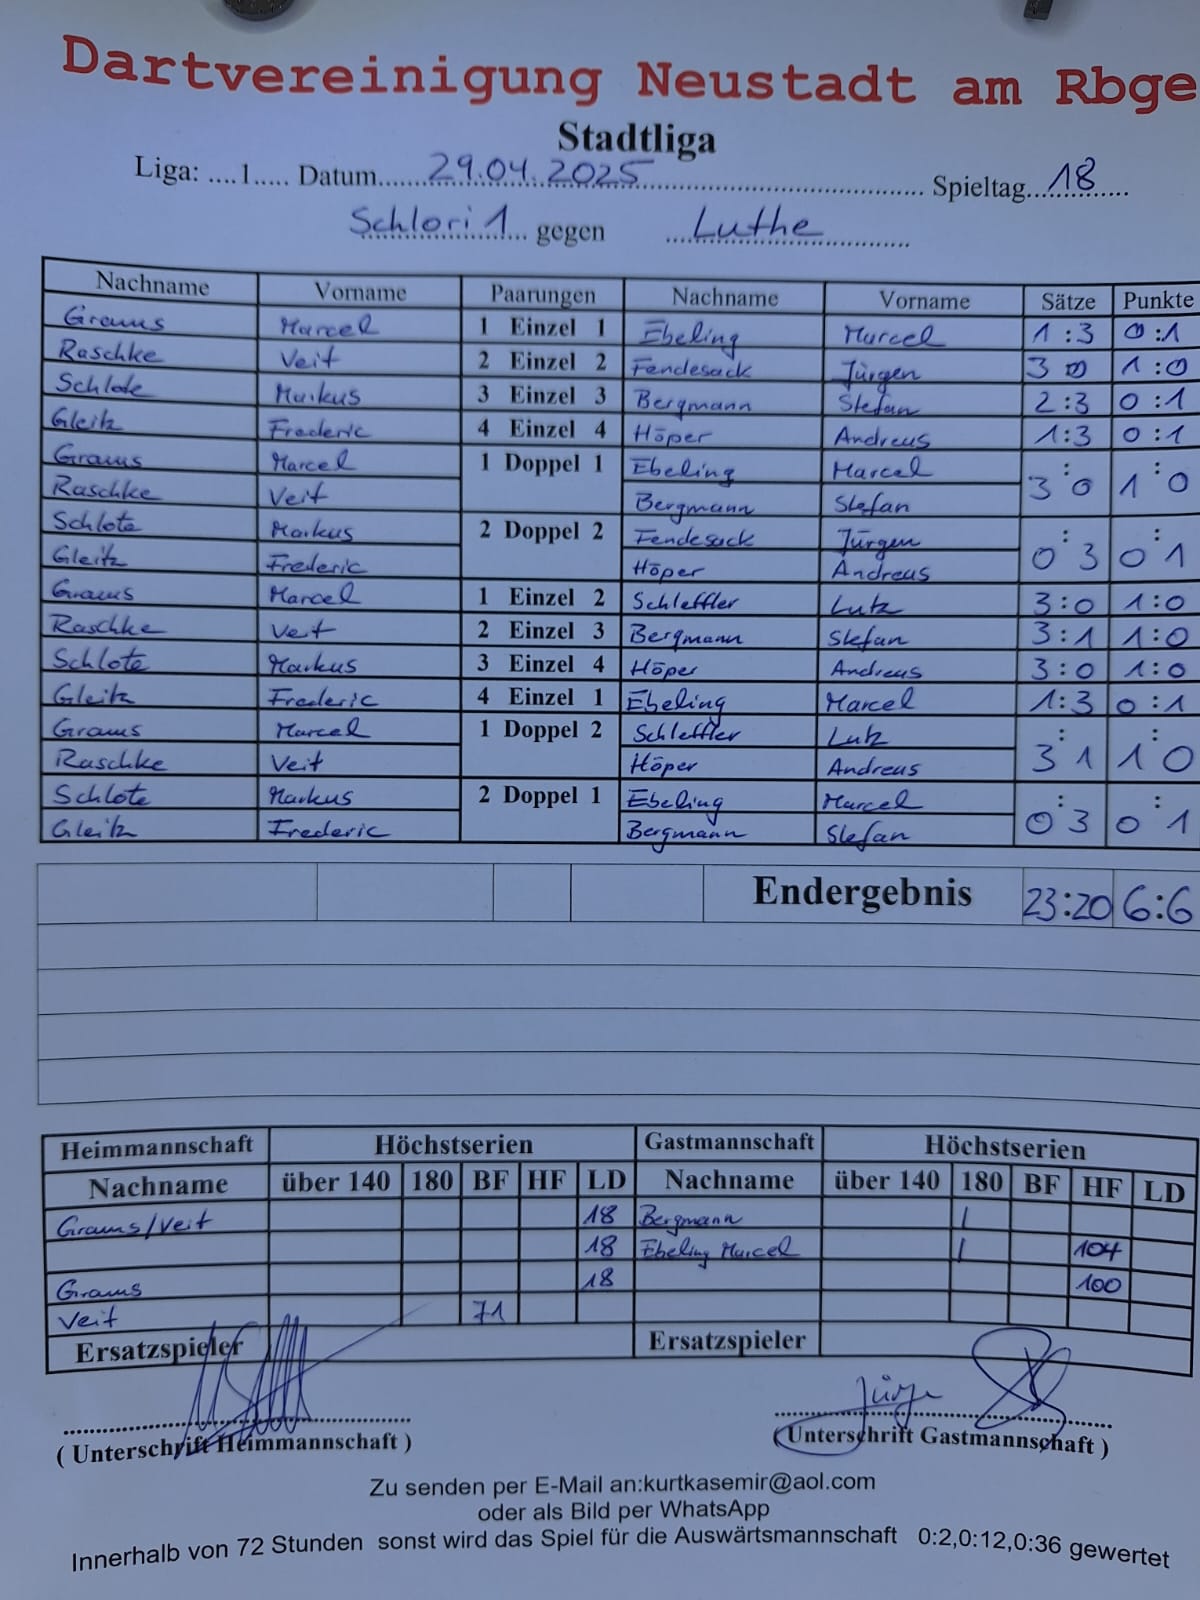 Dartvereinigung Neustadt am Rbge
Stadtliga
Liga: ....1..... Datum......29.04.2025...... Spieltag...18......
Schlori 1 gegen Luthe
Nachname Vorname Paarungen Nachname Vorname Sätze Punkte
Grams Marcel 1 Einzel 1 Ebeling Marcel 1:3 0:1
Raschke Veit 2 Einzel 2 Fendesack Jürgen 3 0 1:0
Schlote Markus 3 Einzel 3 Bergmann Stefan 2:3 0:1
Gleitz Frederic 4 Einzel 4 Höper Andreas 1:3 0:1
Grams Marcel 1 Doppel 1 Ebeling Marcel 3:0 1:0
Raschke Veit Bergmann Stefan
Schlote Markus 2 Doppel 2 Fendesack Jürgen 0:3 0:1
Gleitz Frederic Höper Andreas
Grams Marcel 1 Einzel 2 Schleffler Lutz 3:0 1:0
Raschke Veit 2 Einzel 3 Bergmann Stefan 3:1 1:0
Schlote Markus 3 Einzel 4 Höper Andreas 3:0 1:0
Gleitz Frederic 4 Einzel 1 Ebeling Marcel 1:3 0:1
Grams Marcel 1 Doppel 2 Schleffler Lutz 3:1 1:0
Raschke Veit Höper Andreas
Schlote Markus 2 Doppel 1 Ebeling Marcel 0:3 0:1
Gleitz Frederic Bergmann Stefan
Endergebnis 23:20 6:6
Heimmannschaft Höchstserien Gastmannschaft Höchstserien
Nachname über 140 180 BF HF LD Nachname über 140 180 BF HF LD
Grams/Veit 18 Bergmann 1
18 Ebeling Marcel 1 104
Grams 18 100
Veit 71
Ersatzspieler Ersatzspieler
Jürge
( Unterschrift Heimmannschaft ) ( Unterschrift Gastmannschaft )
Zu senden per E-Mail an:kurtkasemir@aol.com
oder als Bild per WhatsApp
Innerhalb von 72 Stunden sonst wird das Spiel für die Auswärtsmannschaft 0:2,0:12,0:36 gewertet